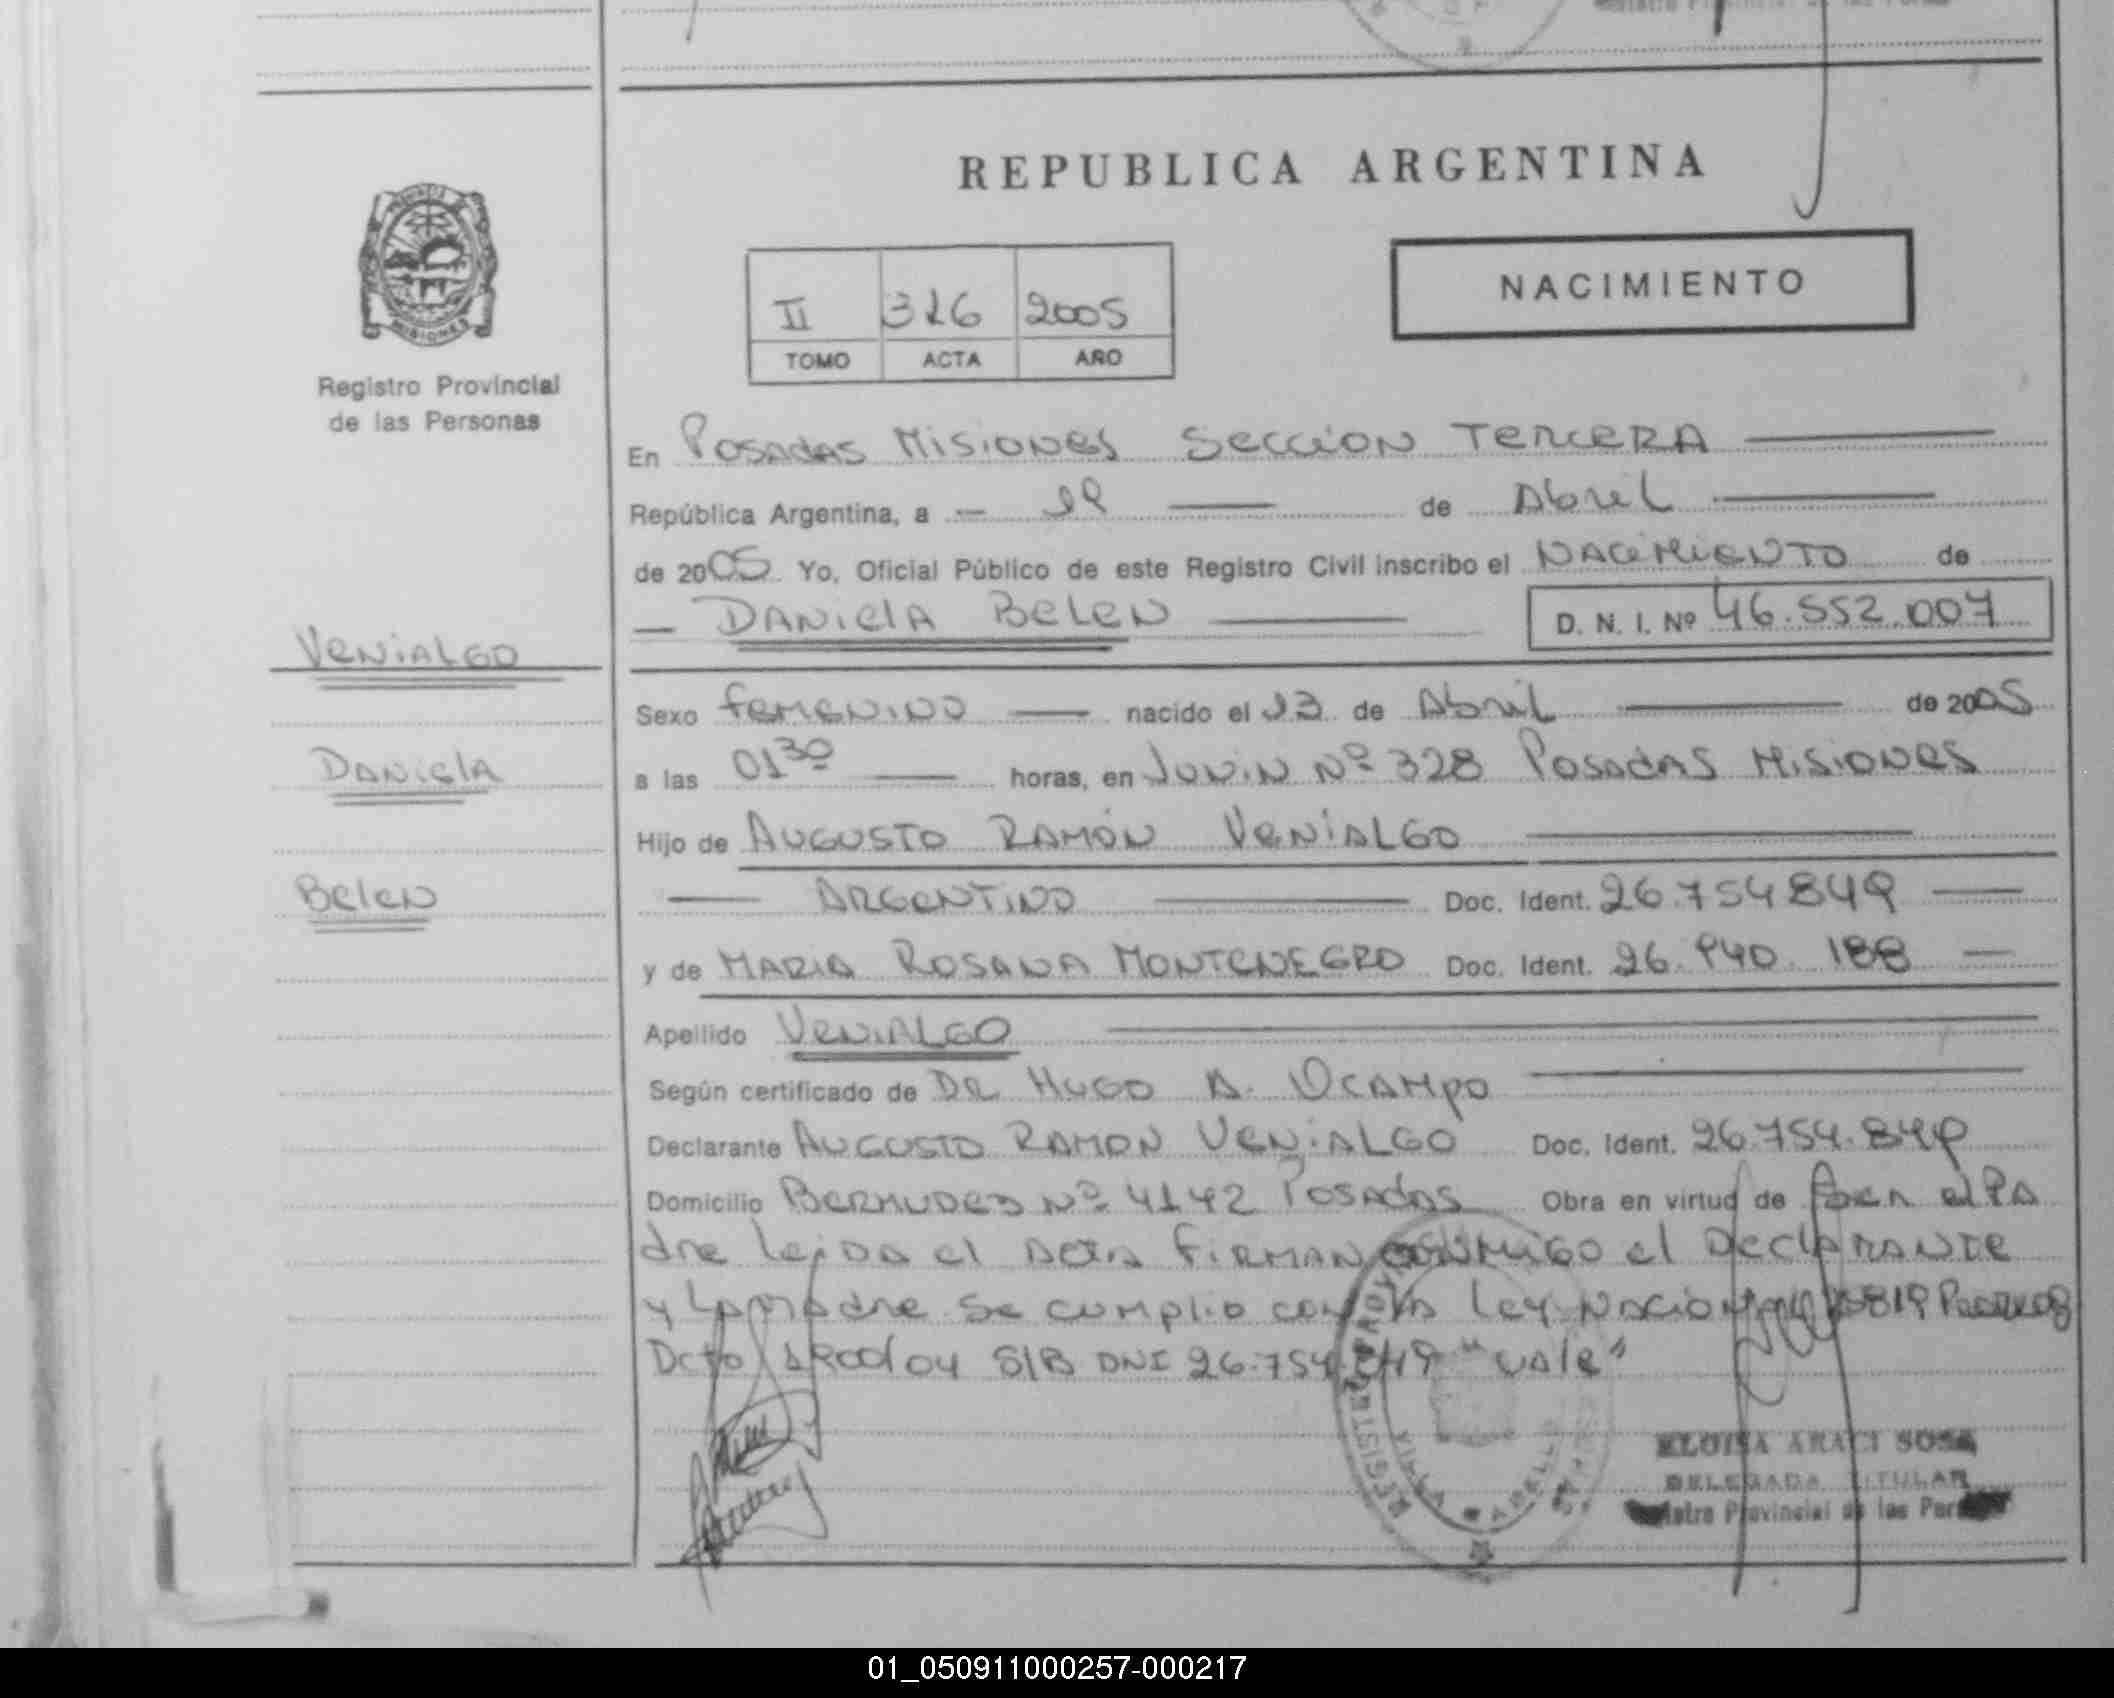 REPUBLICA ARGENTINA
MISIONES
Registro Provincial
de las Personas
NACIMIENTO
II 316 2005
TOMO ACTA AÑO
En Posadas Misiones Seccion Tercera
República Argentina, a 19 de Abril
de 2005 Yo, Oficial Público de este Registro Civil inscribo el NACIMIENTO de
Daniela Belen D. N. I. Nº 46.552.007
Venialgo
Daniela
Belen
Sexo femenino nacido el 13 de Abril de 2005
a las 01 30 horas, en Junin Nº 328 Posadas Misiones
Hijo de Augusto Ramón Venialgo
Argentino Doc. Ident. 26.754849
y de Maria Rosana Montenegro Doc. Ident. 26.940.188
Apellido Venialgo
Según certificado de Dr Hugo A. Ocampo
Declarante Augusto Ramon Venialgo Doc. Ident. 26.754.849
Domicilio Bermudes Nº 4142 Posadas Obra en virtud de ser el Pa
dre leida el acta firman conmigo el Declarante
y la madre se cumplio con la Ley Nacional
Dcto 1900/04 S/B DNI 26.754.849 "vale"
ELOISA ARACI SOSA
DELEGADA TITULAR
Provincial de las
REGISTRO VILLA CABELLO
01_050911000257-000217